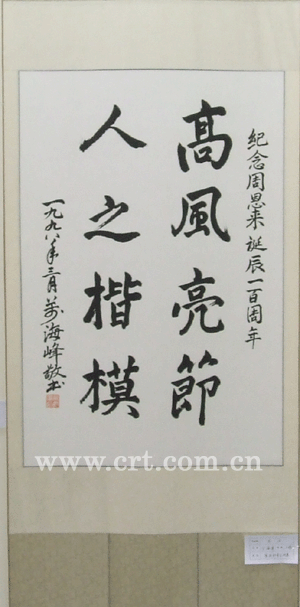 紀念周恩来誕辰一百周年
高風亮節
人之楷模
一九九八年三月萬海峰敬书
www.crt.com.cn